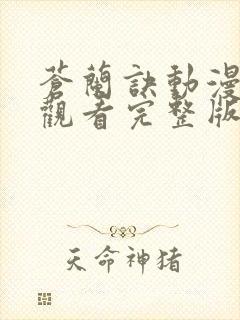 蒼蘭訣動漫
觀看完整版
天命神猪